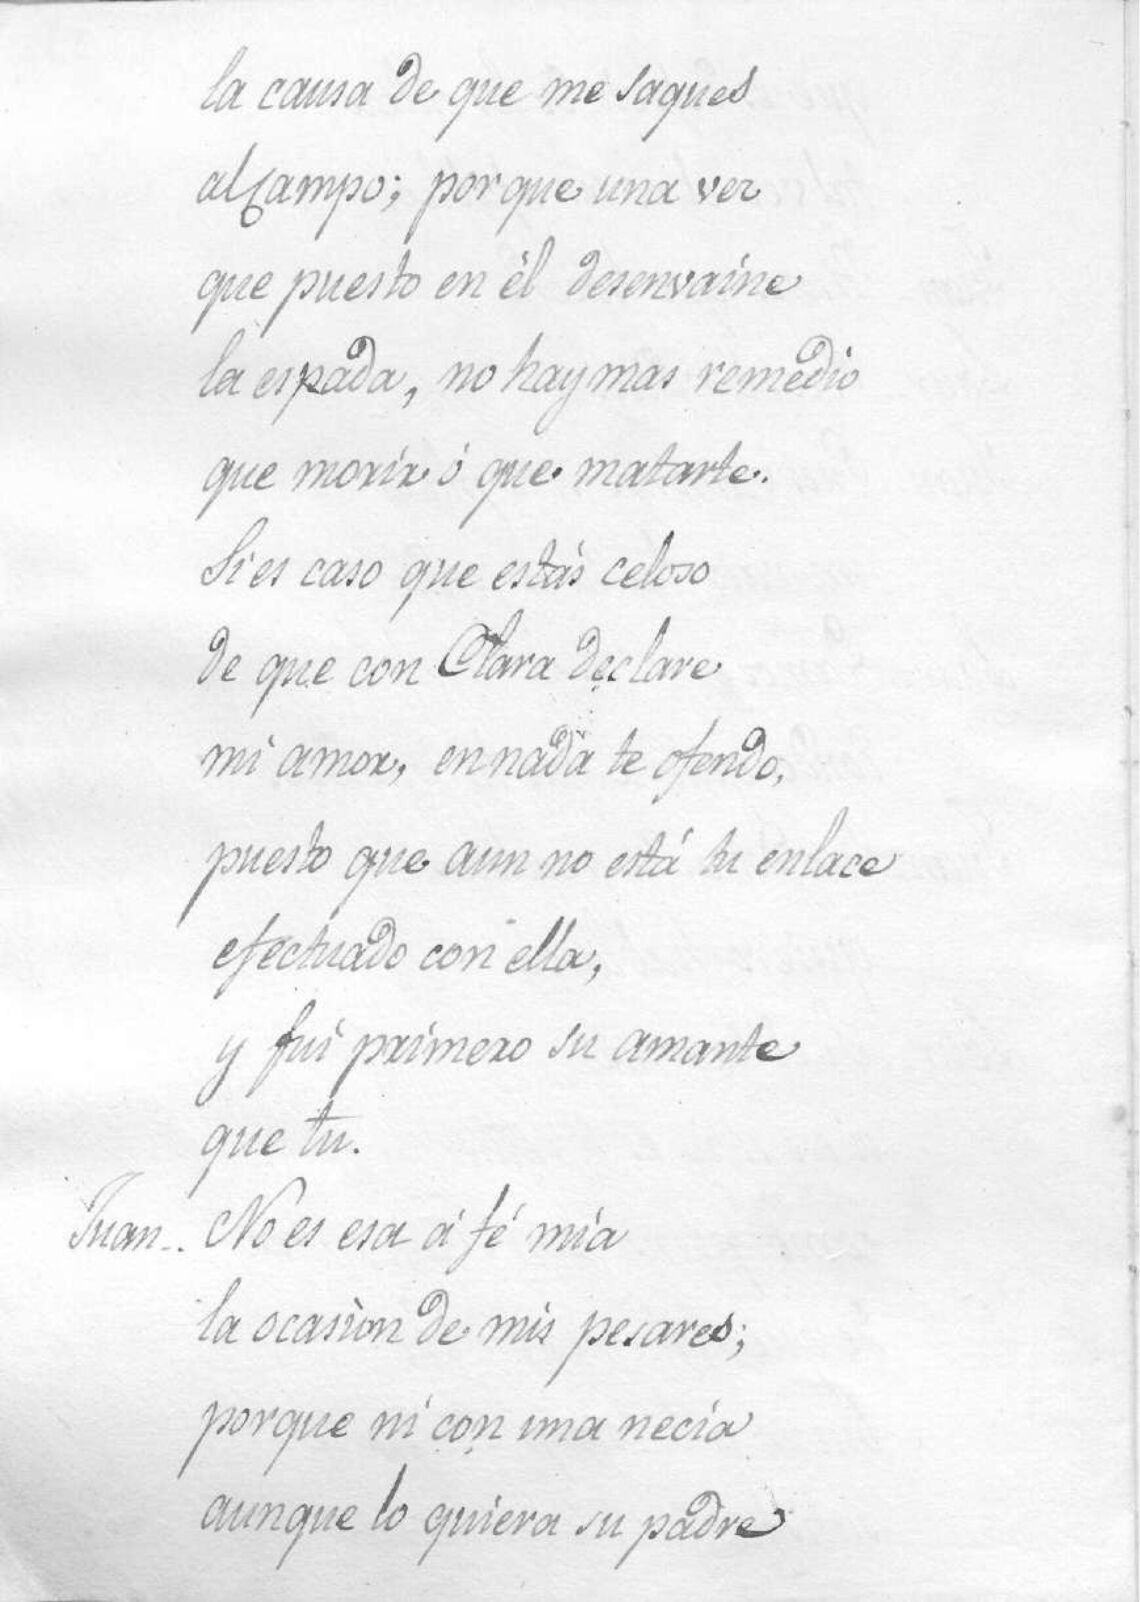 la causa de que me saques
al Campo; porque una vez
que puesto en èl desenvaine
la espada, no hay mas remedio
que morir ó que matarte.
Si es caso que estás celoso
de que con Clara declare
mi amor, en nada te ofendo,
puesto que aun no está tu enlace
efectuado con ella,
y fui primero su amante
que tu.
Juan.. No es esa á fé mia
la ocasion de mis pesares;
porque ni con una necia
aunque lo quiera su padre